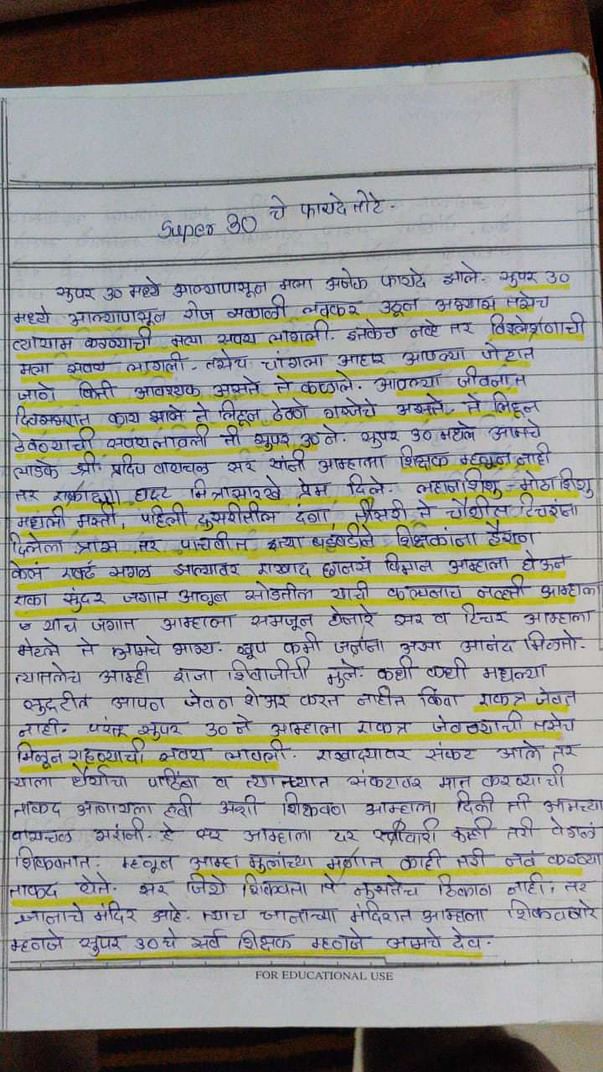 Super 30 चे फायदे तोटे.
सुपर 30 मध्ये आल्यापासून मला अनेक फायदे झाले. सुपर 30
मध्ये आल्यापासून रोज सकाळी लवकर उठून अभ्यास तसेच
व्यायाम करण्याची मला सवय लागली. इतकेच नव्हे तर विश्लेशनाची
मला सवय लागली. तसेच चांगला आहार आपल्या पोटात
जाणे किती आवश्यक असते ते कळाले. आपल्या जीवनात
दिवसभरात काय झाले ते लिहून ठेवणे गरजेचे असते. ते लिहून
ठेवण्याची सवय लावली ती सुपर 30 ने. सुपर 30 मधले आमचे
लाडके श्री. प्रदिप वाघचळ सर यांनी आम्हाला शिक्षक म्हणून नाही
तर एकाद्या घट्ट मित्रासारखे प्रेम दिले. लहानशिशु - मोठाशिशु
मधली मस्ती, पहिली दुसरीतील दंगा, तीसरी ते चौथीत टिचरांना
दिलेला त्रास तर पाचवीत इत्या बडबडीने शिक्षकांना हैराण
केलं एवढं सगळ झाल्यावर एखाद छानसे विमान आम्हाला घेऊन
एका सुंदर जगात आणून सोडतील याची कल्पनाच नव्हती आम्हाला
याच जगात आम्हाला समजून घेणारे सर व टिचर आम्हाला
भेटले ते आमचे भाग्य. खूप कमी जनांना असा आनंद मिळतो.
त्यातलेच आम्ही राजा शिवाजीची मुले. कधी कधी मधल्या
सुट्टीत आपण जेवण शेअर करत नाहीत किंवा एकत्र जेवत
नाही. परंतु सुपर 30 ने आम्हाला एकत्र जेवण्याची तसेच
मिळून राहण्याची सवय लावली. एखाद्यावर संकट आले तर
त्याला धैर्याचा पाठिंबा व त्याच्यात संकटावर मात करण्याची
ताकद असायला हवी अशी शिकवण आम्हाला दिली ती आमच्या
वाघचळ सरांनी. हे सर आम्हाला दर रविवारी काही तरी वेगळं
शिकवतात. म्हणून आम्हा मुलांच्या मनात काही तरी नवं करण्या
ताकद येते. सर जिथे शिकवता ते नुसतेच ठिकाण नाही, तर
ज्ञानाचे मंदिर आहे. त्याच ज्ञानाच्या मंदिरात आम्हाला शिकवणारे
म्हणजे सुपर 30 चे सर्व शिक्षक म्हणजे आमचे देव.
FOR EDUCATIONAL USE